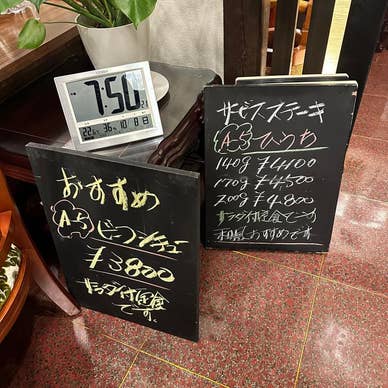 7:50 21
22.6℃ 36% 10月8日
おすすめ
A-5ビーフシチュー
¥3800
サラダ付定食
です。
サービスステーキ
A-5ひうち
140g ¥4100
170g ¥4500
200g ¥4.800
サラダ付定食です
和風おすすめです